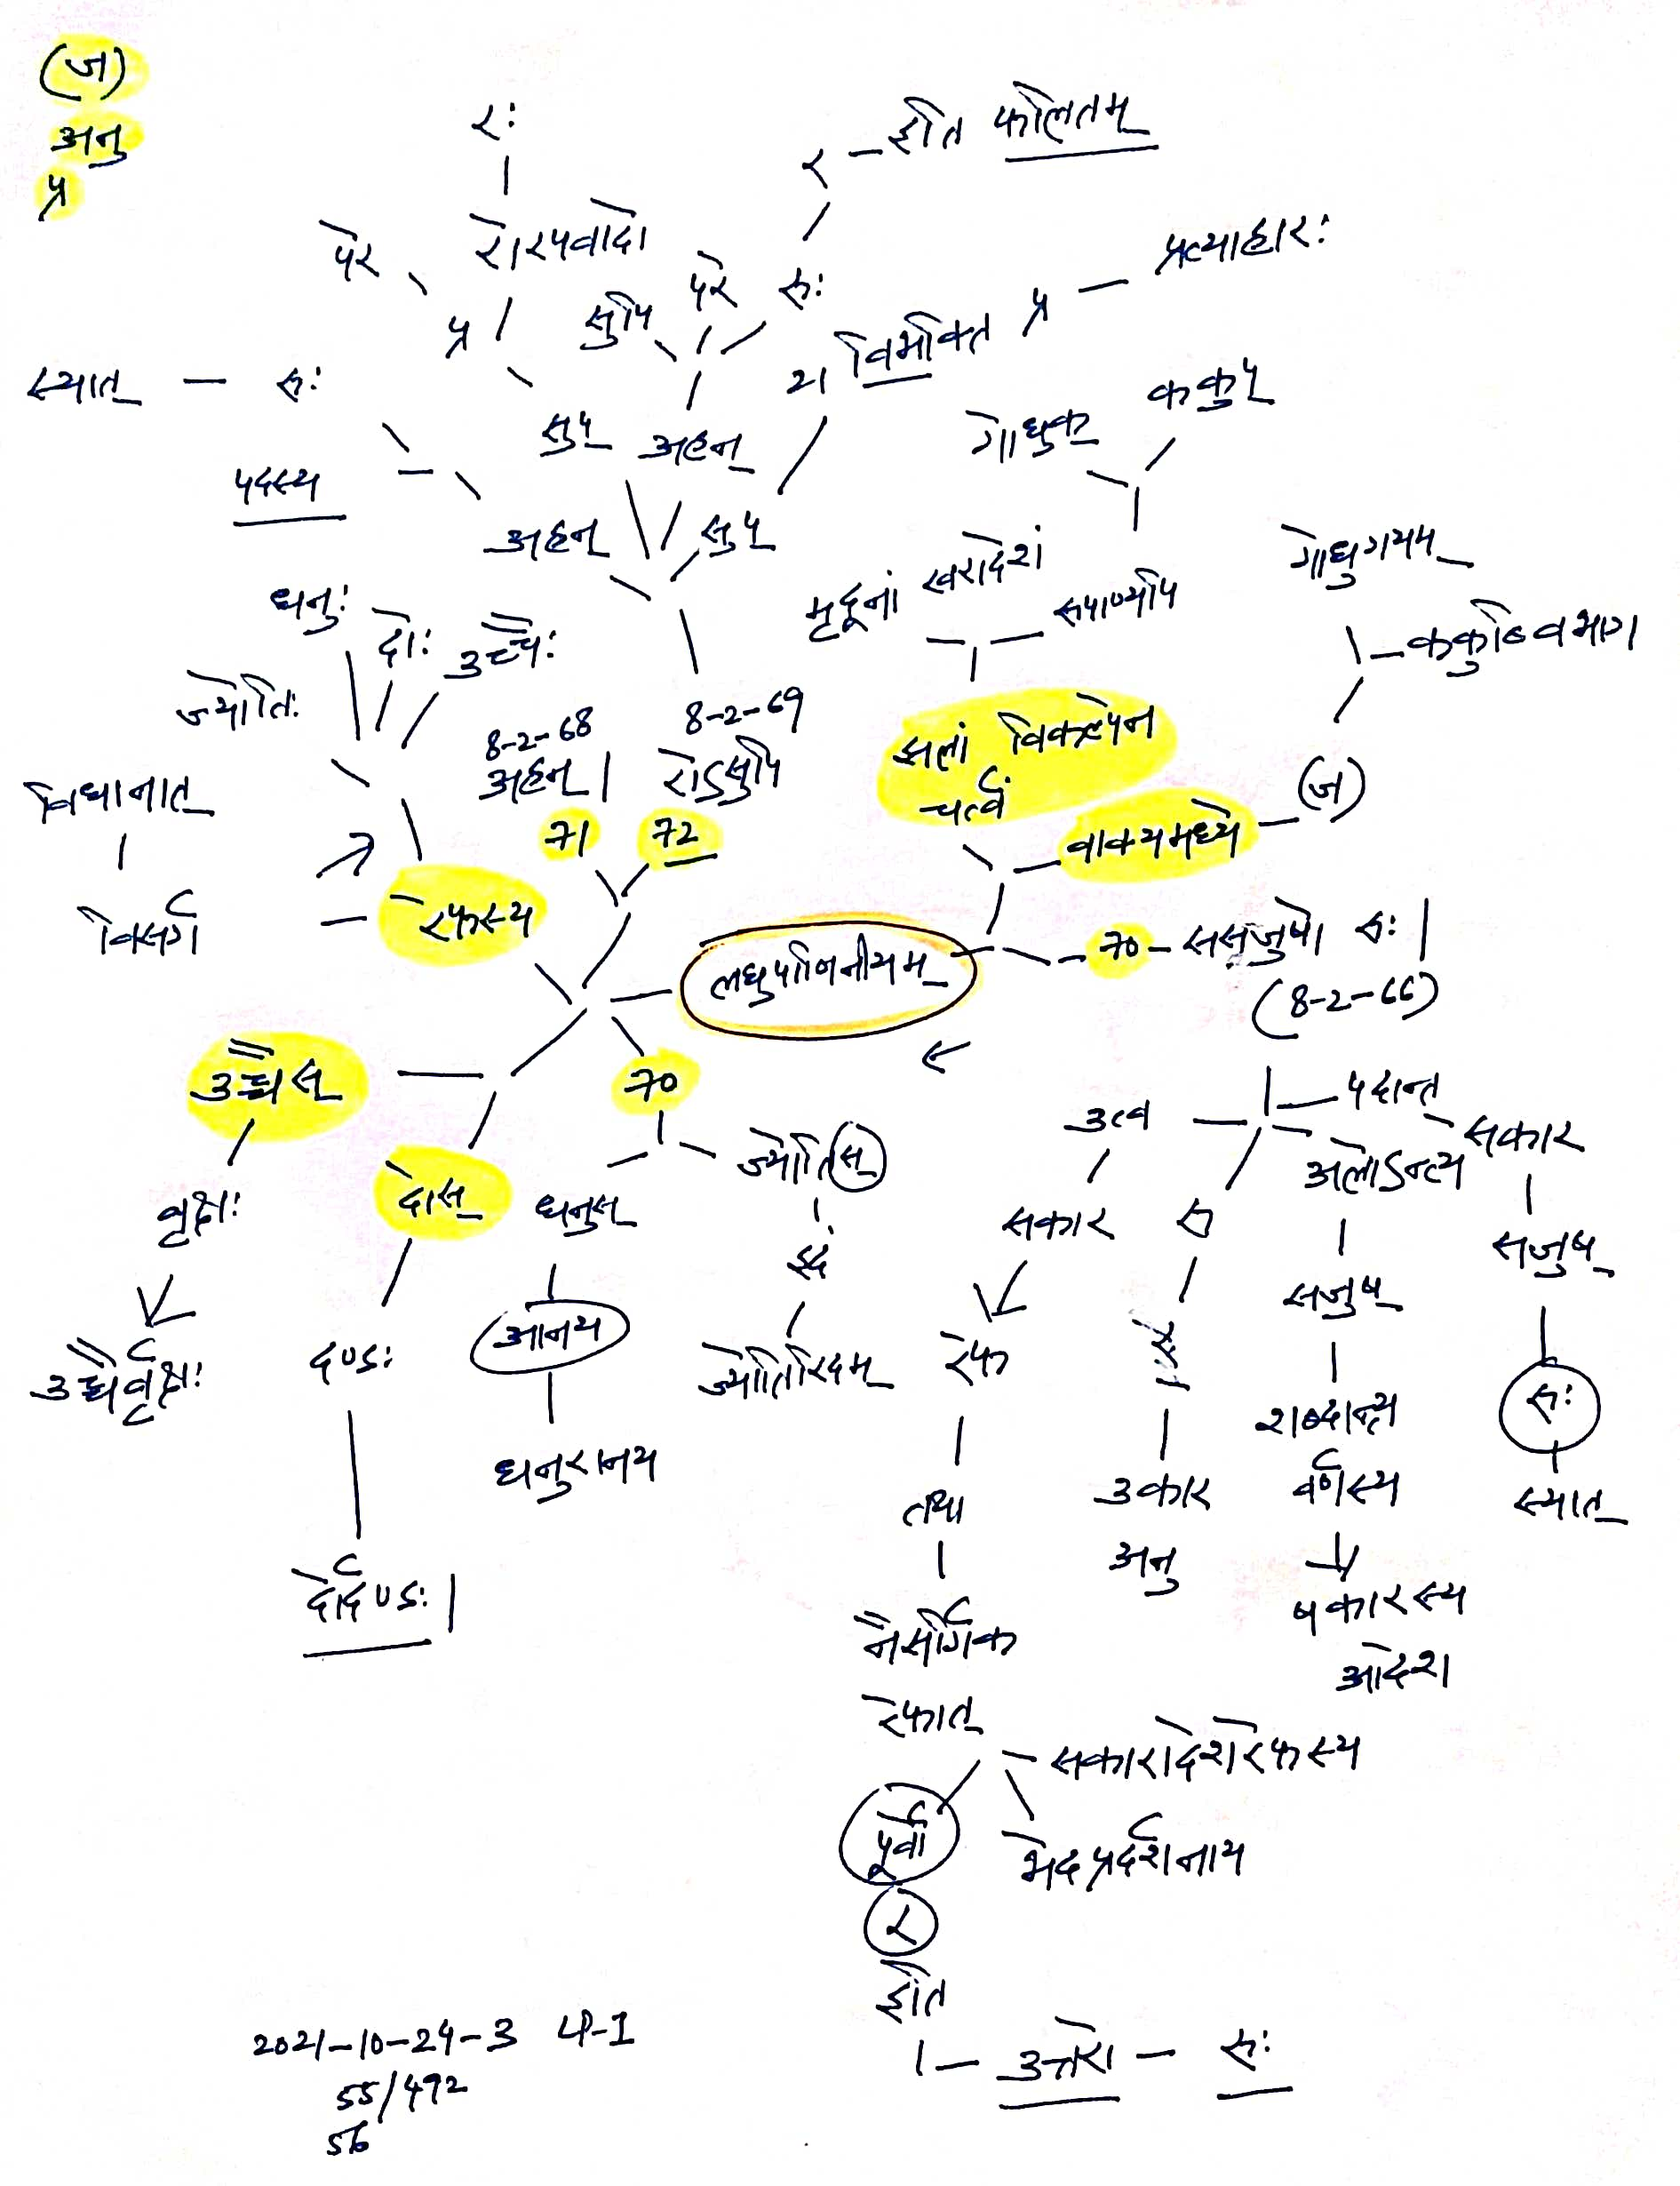 (ज)
अनु
प्र
रः
र - इति फलितम्
परे
रोरपवादो
प्रत्याहारः
प्र
सुपि
परे
रुः
स्यात् - रुः
विभक्ति
प्र
सुप्
अहन्
गोधुक्
ककुप्
पदस्य
अहन्
सुप्
धनुः
दोः
उच्चैः
मृदूनां
खरादेशं
रूपाण्यपि
गोधुगयम्
ककुब्विभाग
ज्योतिः
8-2-68
अहन् |
8-2-69
रोऽसुपि
झलां विकल्पेन
चर्त्वं
विधानात्
71
72
वाक्यमध्ये
(ज)
विसर्ग
रेफस्य
लघुपाणिनीयम्
70 - ससजुषो रुः |
(8-2-66)
उच्चैस्
70
उत्व
पदान्त
सकार
अलोऽन्त्य
वृक्षः
दोस्
धनुस्
ज्योतिस्
सकार
रु
सजुष्
सजुष्
इदं
उच्चैर्वृक्षः
दण्डः
आनय
ज्योतिरिदम्
रेफ
रुः
धनुरानय
तथा
उकार
अनु
शब्दान्त्य
वर्णस्य
स्यात्
दोर्दण्डः |
नैसर्गिक
षकारस्य
आदेश
रेफात्
सकारादेशरेफस्य
पूर्वो
भेदप्रदर्शनाय
र
इति
उत्तरो - रुः
2021-10-24-3 LP-1
55/492
56